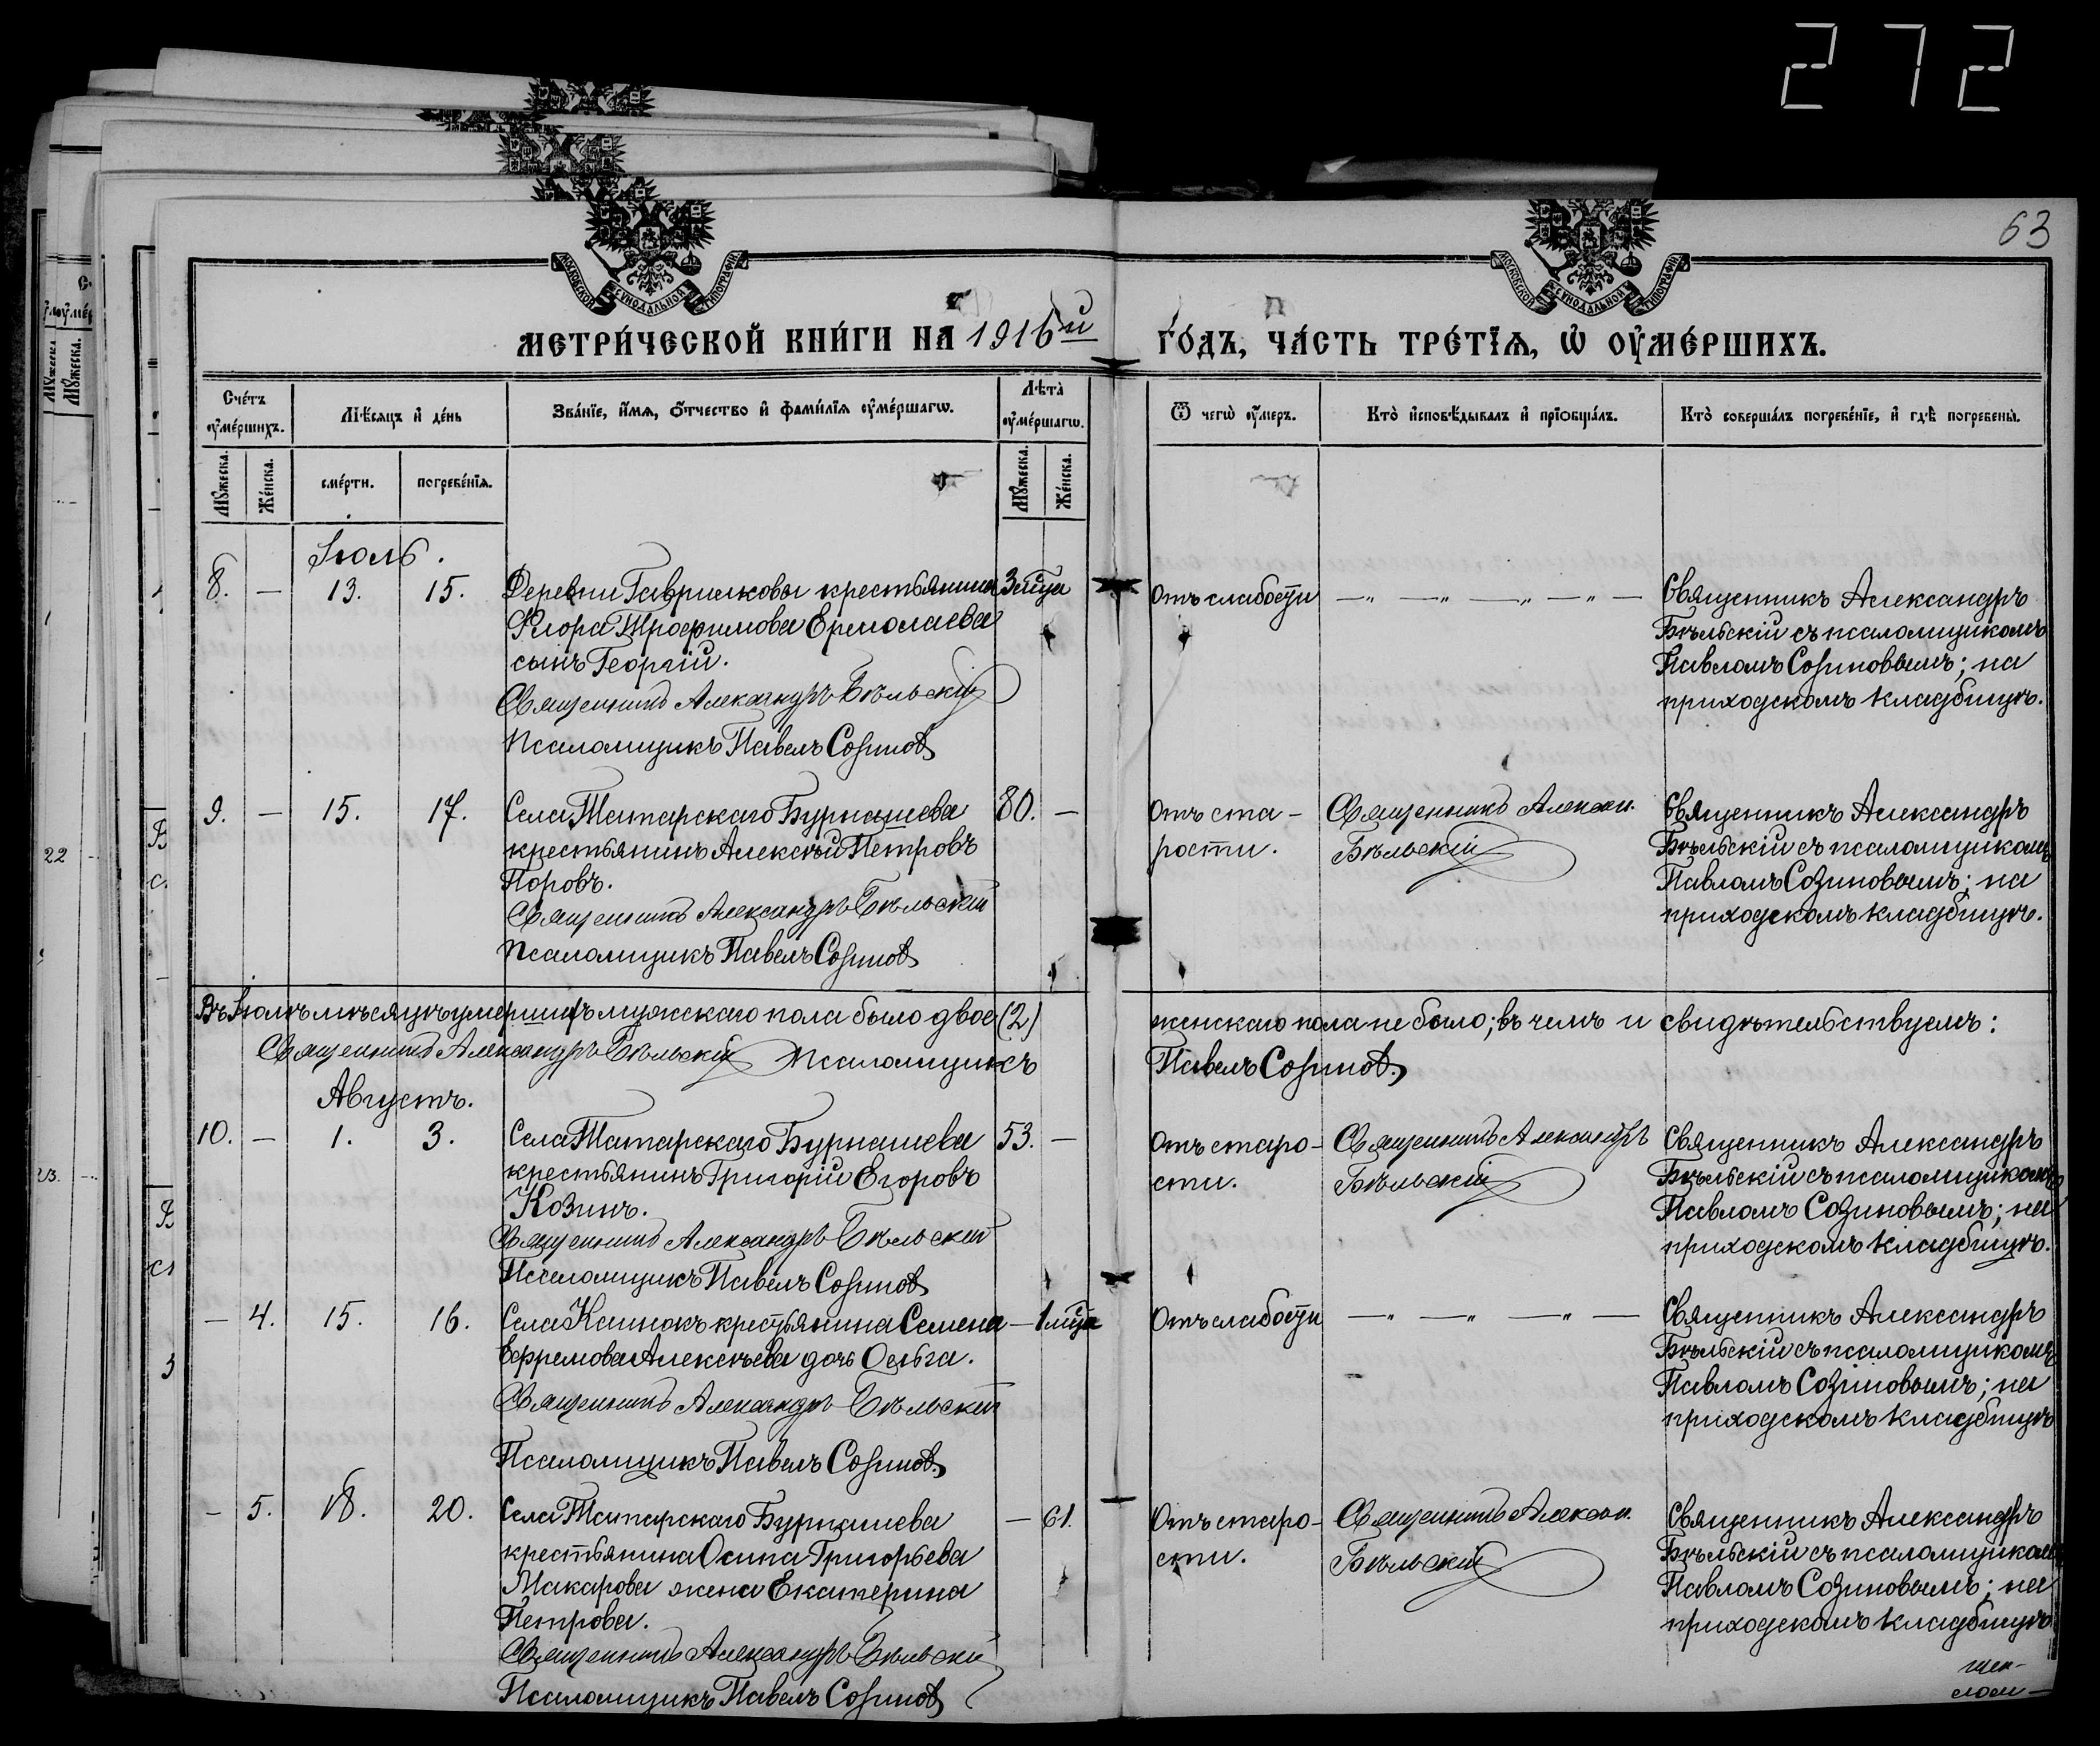 272
63
МОСКОВСКОЙ СѴНОДАЛЬНОЙ ТИПОГРАФІИ
МОСКОВСКОЙ СѴНОДАЛЬНОЙ ТИПОГРАФІИ
МЕТРИ́ЧЕСКОЙ КНИ́ГИ НА 1916й го́дъ, ча́сть тре́тїѧ, ѡ҆ оу҆ме́ршихъ.
Сче́тъ оу҆ме́ршихъ.
Мꙋ́жеска.
Же́нска.
Мѣ́сѧцъ и҆ де́нь
сме́рти.
погребе́нїѧ.
Зва́нїе, и҆́мѧ, ѻ҆́тчество и҆ фами́лїѧ оу҆ме́ршагѡ.
Лѣ́та оу҆ме́ршагѡ.
Мꙋ́жеска.
Же́нска.
Ѿ чегѡ̀ оу҆́меръ.
Кто̀ и҆сповѣ́дывалъ и҆ прїѡбща́лъ.
Кто̀ соверша́лъ погребе́нїе, и҆ гдѣ̀ погребены̀.
Іюль.
8. — 13. 15. Деревни Гаврилковы крестьянина 3 м-ца
Флора Трофимова Ермолаева
сынъ Георгій.
Священникъ Александръ Бѣльскій
Псаломщикъ Павелъ Созинов
Отъ слабости — „ — „ — „ — „ —
Священникъ Александръ
Бѣльскій съ псаломщикомъ
Павломъ Созиновымъ; на
приходскомъ кладбищѣ.
9. — 15. 17. Села Татарскаго Бурнашева 80. —
крестьянинъ Алексѣй Петровъ
Поровъ.
Священникъ Александръ Бѣльскій
Псаломщикъ Павелъ Созинов
Отъ ста-
рости.
Священникъ Алексан.
Бѣльскій
Священникъ Александръ
Бѣльскій съ псаломщикомъ
Павломъ Созиновымъ; на
приходскомъ кладбищѣ.
Въ Іюлѣ мѣсяцѣ умершихъ мужскаго пола было двое (2) женскаго пола не было; въ чемъ и свидѣтельствуемъ:
Священникъ Александръ Бѣльскій Псаломщикъ Павелъ Созинов.
Августъ.
10. — 1. 3. Села Татарскаго Бурнашева 53. —
крестьянинъ Григорій Егоровъ
Козинъ.
Священникъ Александръ Бѣльскій
Псаломщикъ Павелъ Созинов
Отъ старо-
сти.
Священникъ Александръ
Бѣльскій
Священникъ Александръ
Бѣльскій съ псаломщикомъ
Павломъ Созиновымъ; на
приходскомъ кладбищѣ.
— 4. 15. 16. Села крестьянина Семена — 1 м-ца
Ефремова Алексѣева дочь Ольга.
Священникъ Александръ Бѣльскій
Псаломщикъ Павелъ Созинов.
Отъ слабости — „ — „ — „ —
Священникъ Александръ
Бѣльскій съ псаломщикомъ
Павломъ Созиновымъ; на
приходскомъ кладбищѣ
— 5. 18. 20. Села Татарскаго Бурнашева — 61.
крестьянина Осипа Григорьева
Макарова жена Екатерина
Петрова.
Священникъ Александръ Бѣльскій
Псаломщикъ Павелъ Созинов
Отъ старо-
сти.
Священникъ Алексан.
Бѣльскій
Священникъ Александръ
Бѣльскій съ псаломщикомъ
Павломъ Созиновымъ; на
приходскомъ кладбищѣ
22